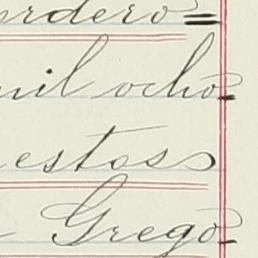 ordero=
mil ocho-
estos
Grego-